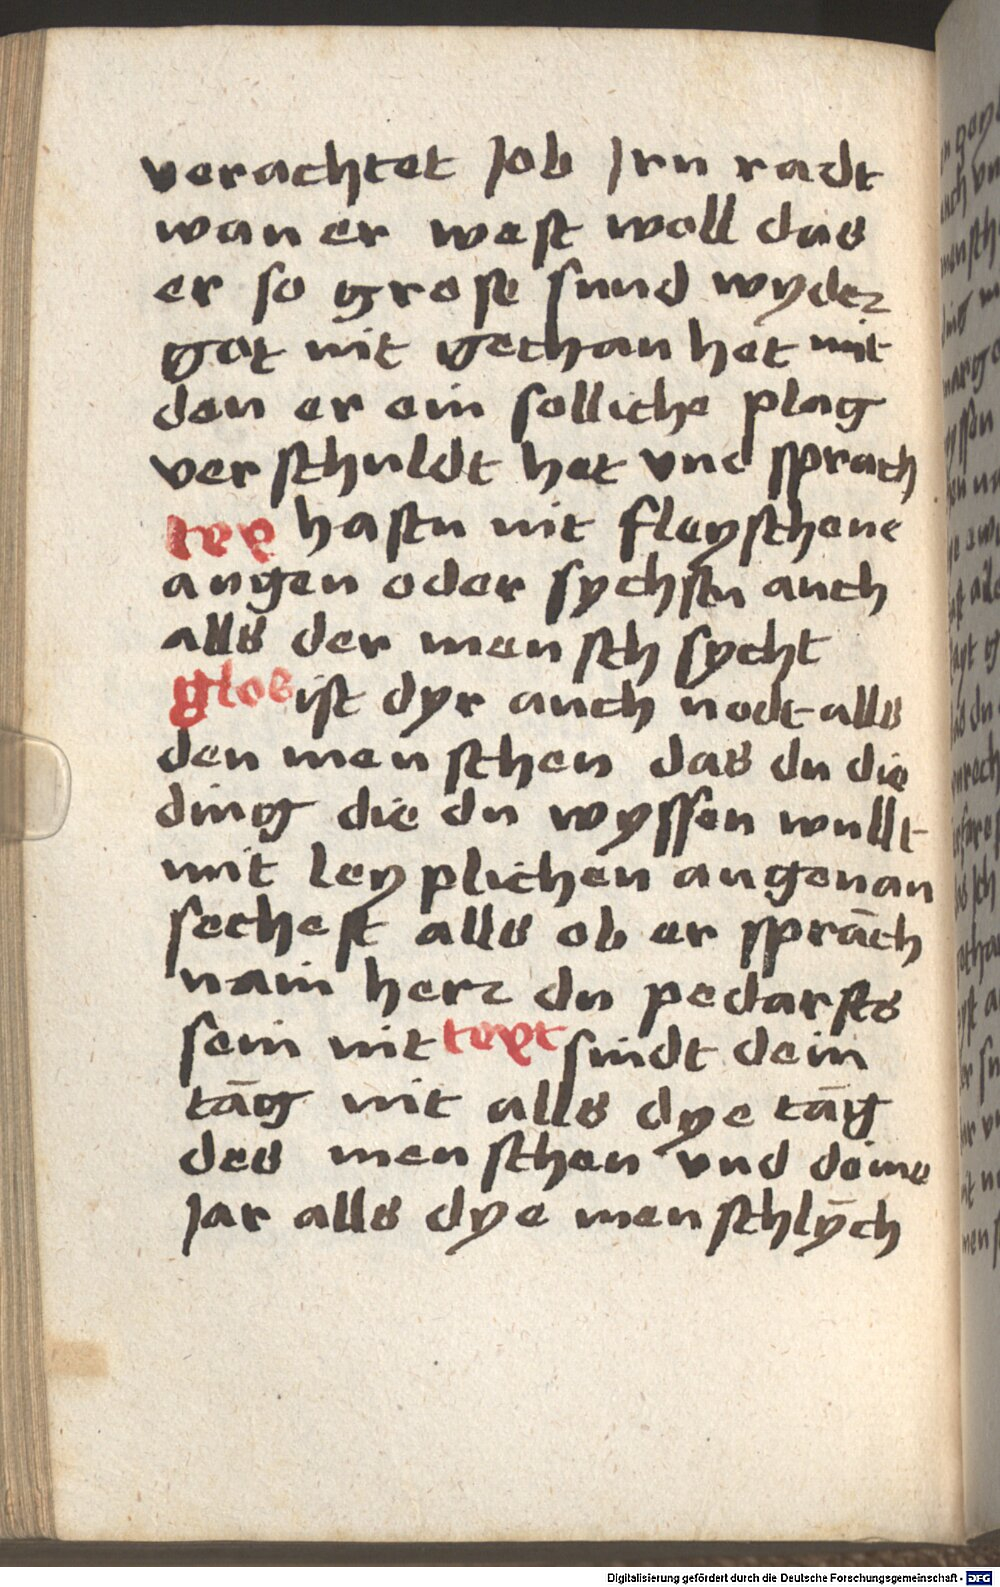 verachtet Job Jrn radt
wan er west woll das
er so grose sund wyder
got nit gethan het mit
den er ein solliche plag
verschuldt het vnd sprach
tex hastu nit fleyschene
augen oder sychstu auch
alls der mensch sycht
glos ist dyr auch nodt alls
den menschen das du die
ding die du wyssen wullt
mit leyplichen augen an
sechest alls ob er sprāch
nain herr du pedarsts
sein nit text sindt dein
tāg nit alls dye tāg
des menschen vnd deine
Jar alls dye menschlȳch
Digitalisierung gefördert durch die Deutsche Forschungsgemeinschaft - DFG